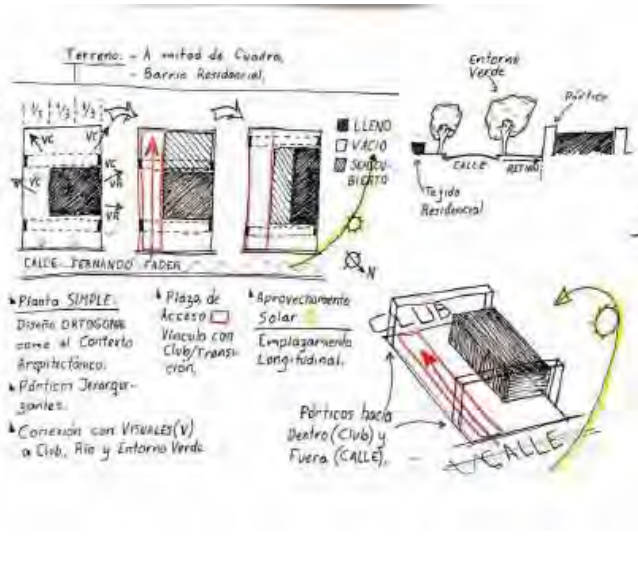 Terreno: - A mitad de Cuadra.
- Barrio Residencial.
1/3 1/3 1/3
VC
VC
VC
VC
VR
VR
LLENO
VACIO
SEMICU-
BIERTO
N
CALLE FERNANDO FADER
Entorno
Verde
Pórtico
CALLE
RETIRO
Tejido
Residencial
Planta SIMPLE.
Diseño ORTOGONAL
como el Contexto
Arquitectónico.
Pórticos Jerarqui-
zantes.
Conexión con VISUALES(V)
a Club, Río y Entorno Verde
Plaza de
Acceso
Vínculo con
Club/Transi-
ción.
Aprovechamiento
Solar
Emplazamiento
Longitudinal.
CLUB
Pórticos hacia
Dentro (Club) y
Fuera (CALLE).
CALLE